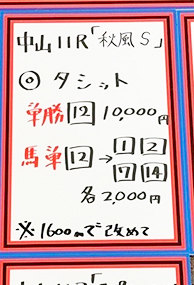 中山11R「秋風S」
◎タシット
単勝 12 10,000円
馬単 12 → 1 2
7 14
各2,000円
※1600mで改めて